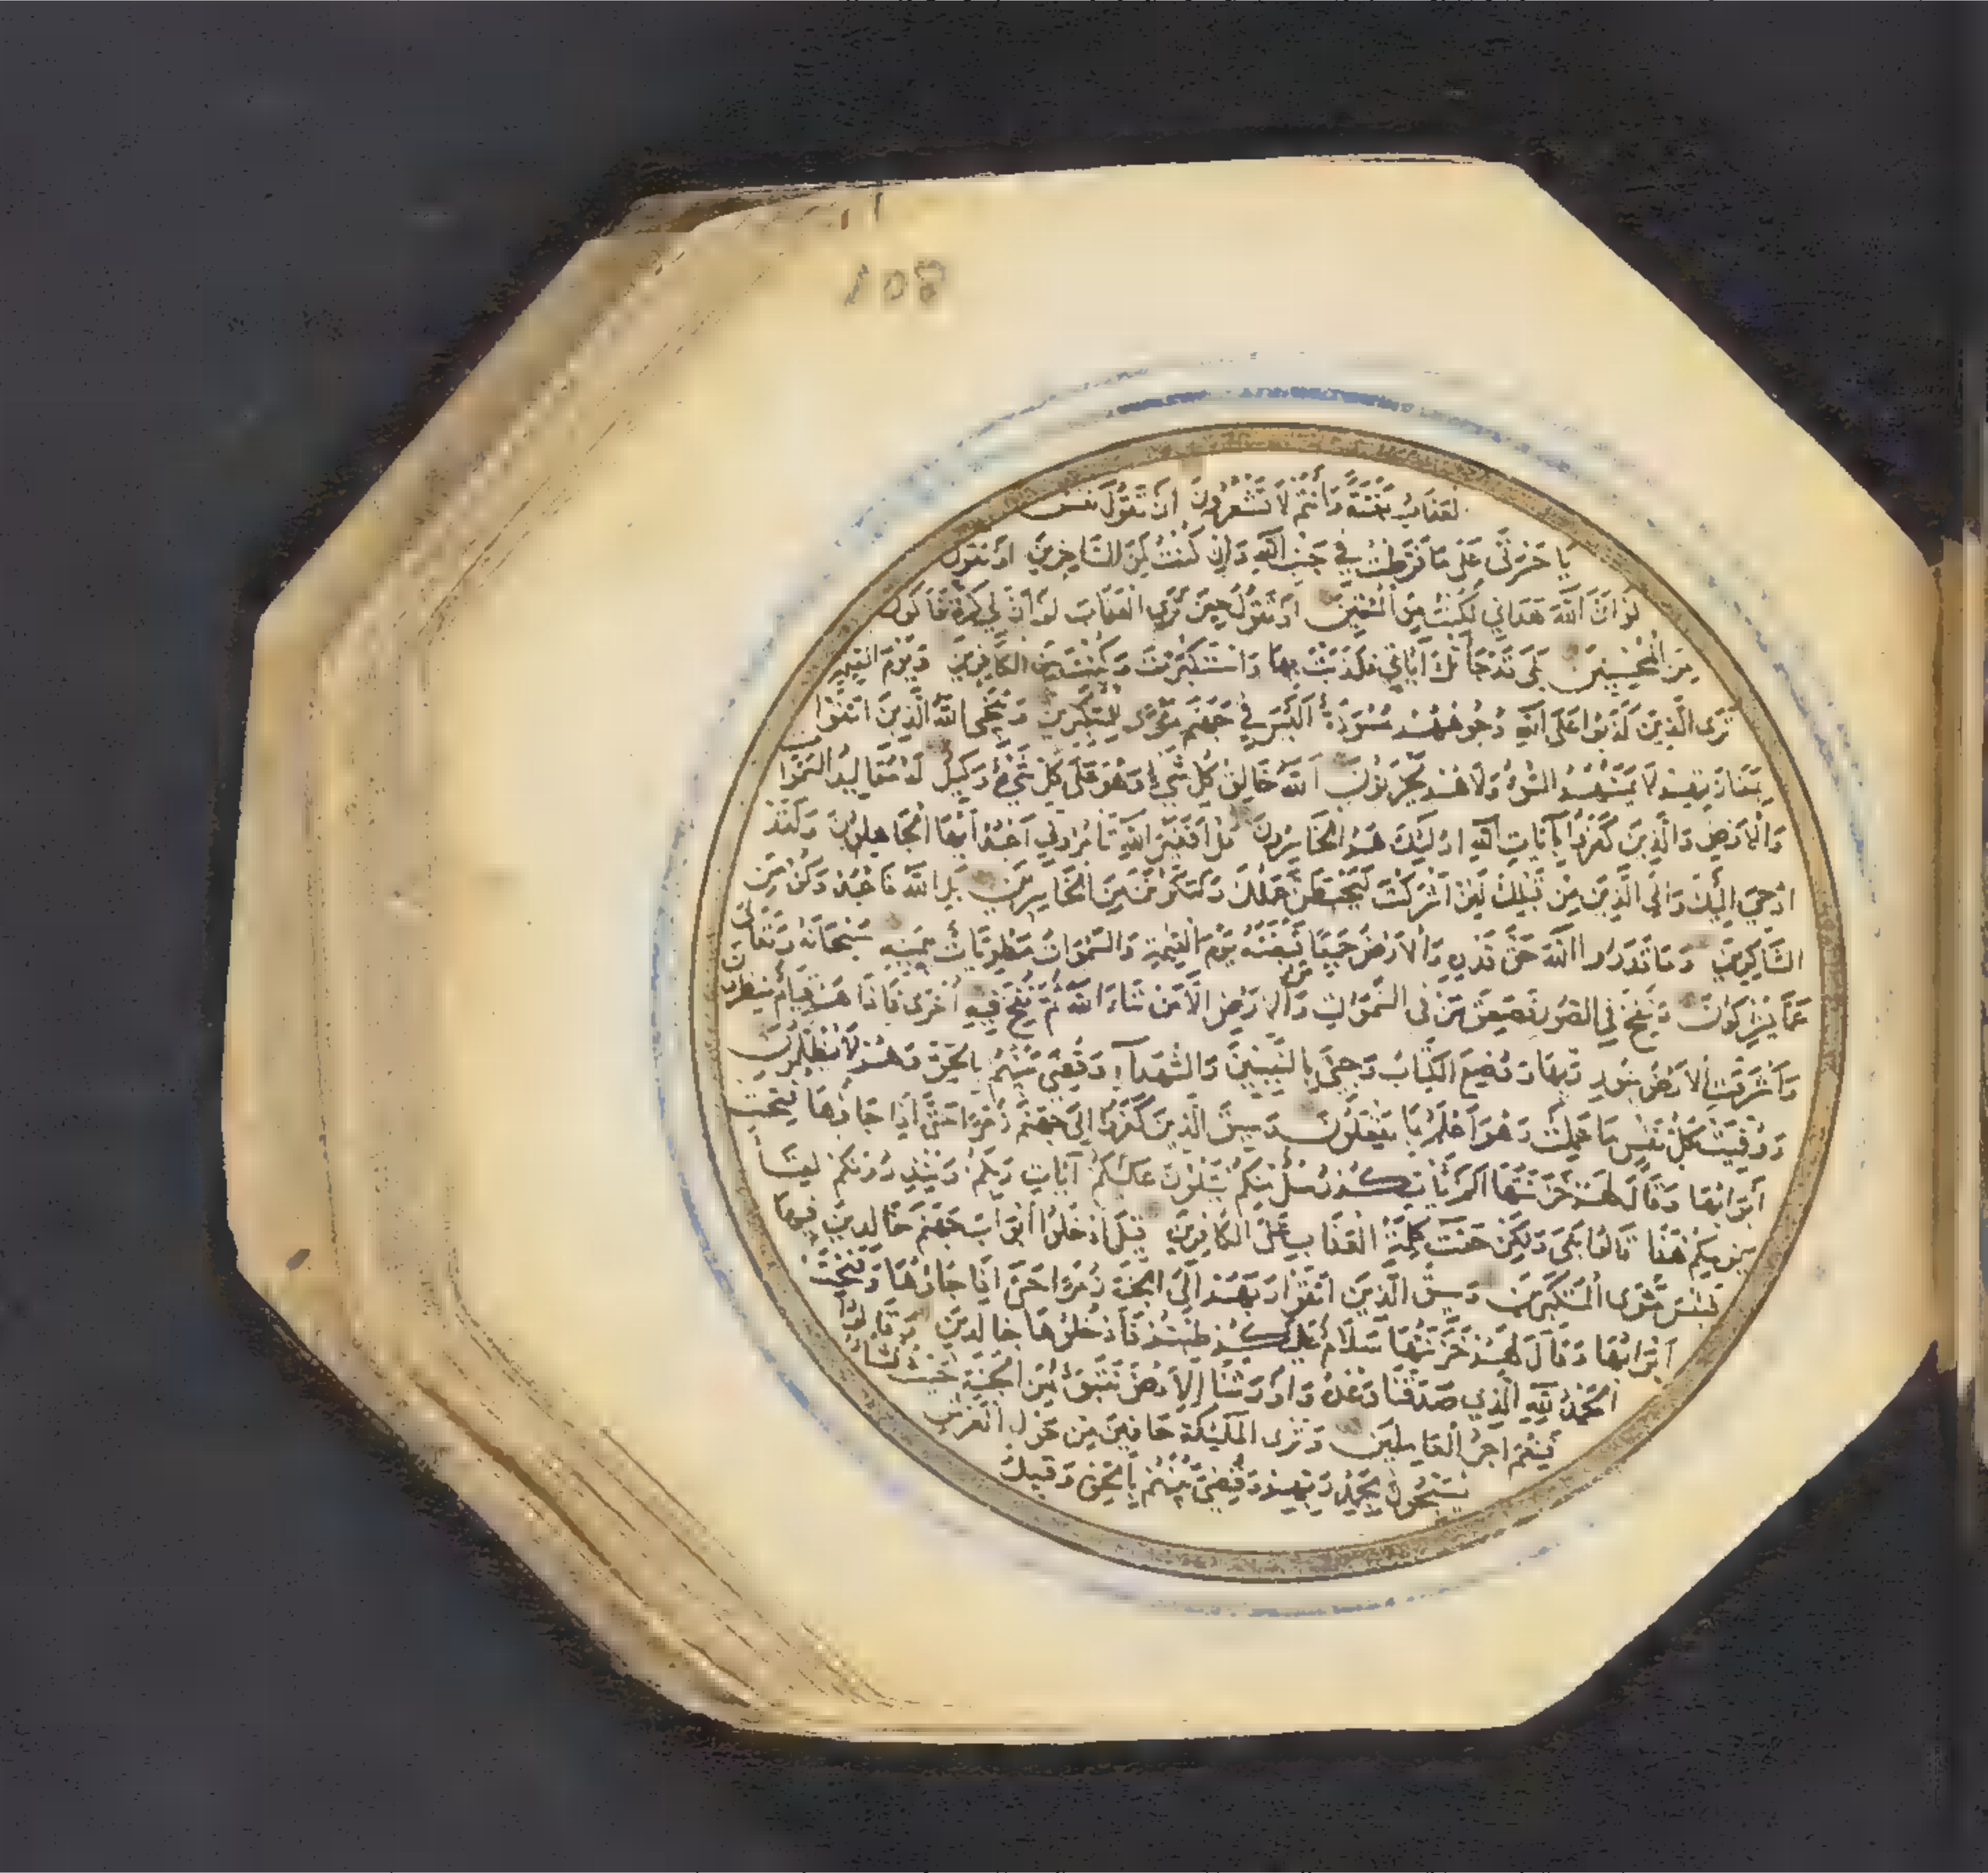 108
العذاب بغتة وأنتم لا تشعرون أن تقول نفس
يا حسرتى على ما فرطت في جنب الله وإن كنت لمن الساخرين أو تقول
لو أن الله هداني لكنت من المتقين أو تقول حين ترى العذاب لو أن لي كرة فأكون
من المحسنين بلى قد جاءتك آياتي فكذبت بها واستكبرت وكنت من الكافرين ويوم القيمة
ترى الذين كذبوا على الله وجوههم مسودة أليس في جهنم مثوى للمتكبرين وينجي الله الذين اتقوا
بمفازتهم لا يمسهم السوء ولا هم يحزنون الله خالق كل شيء وهو على كل شيء وكيل له مقاليد السموات
والأرض والذين كفروا بآيات الله أولئك هم الخاسرون قل أفغير الله تأمروني أعبد أيها الجاهلون ولقد
أوحي إليك وإلى الذين من قبلك لئن أشركت ليحبطن عملك ولتكونن من الخاسرين بل الله فاعبد وكن من
الشاكرين وما قدروا الله حق قدره والأرض جميعا قبضته يوم القيمة والسموات مطويات بيمينه سبحانه وتعالى
عما يشركون ونفخ في الصور فصعق من في السموات ومن في الأرض إلا من شاء الله ثم نفخ فيه أخرى فإذا هم قيام ينظرون
وأشرقت الأرض بنور ربها ووضع الكتاب وجيء بالنبيين والشهداء وقضي بينهم بالحق وهم لا يظلمون
ووفيت كل نفس ما عملت وهو أعلم بما يفعلون وسيق الذين كفروا إلى جهنم زمرا حتى إذا جاؤها فتحت
أبوابها وقال لهم خزنتها ألم يأتكم رسل منكم يتلون عليكم آيات ربكم وينذرونكم لقاء
يومكم هذا قالوا بلى ولكن حقت كلمة العذاب على الكافرين قيل ادخلوا أبواب جهنم خالدين فيها
فبئس مثوى المتكبرين وسيق الذين اتقوا ربهم إلى الجنة زمرا حتى إذا جاؤها وفتحت
أبوابها وقال لهم خزنتها سلام عليكم طبتم فادخلوها خالدين وقالوا
الحمد لله الذي صدقنا وعده وأورثنا الأرض نتبوء من الجنة حيث نشاء
فنعم أجر العاملين وترى الملئكة حافين من حول العرش
يسبحون بحمد ربهم وقضي بينهم بالحق وقيل